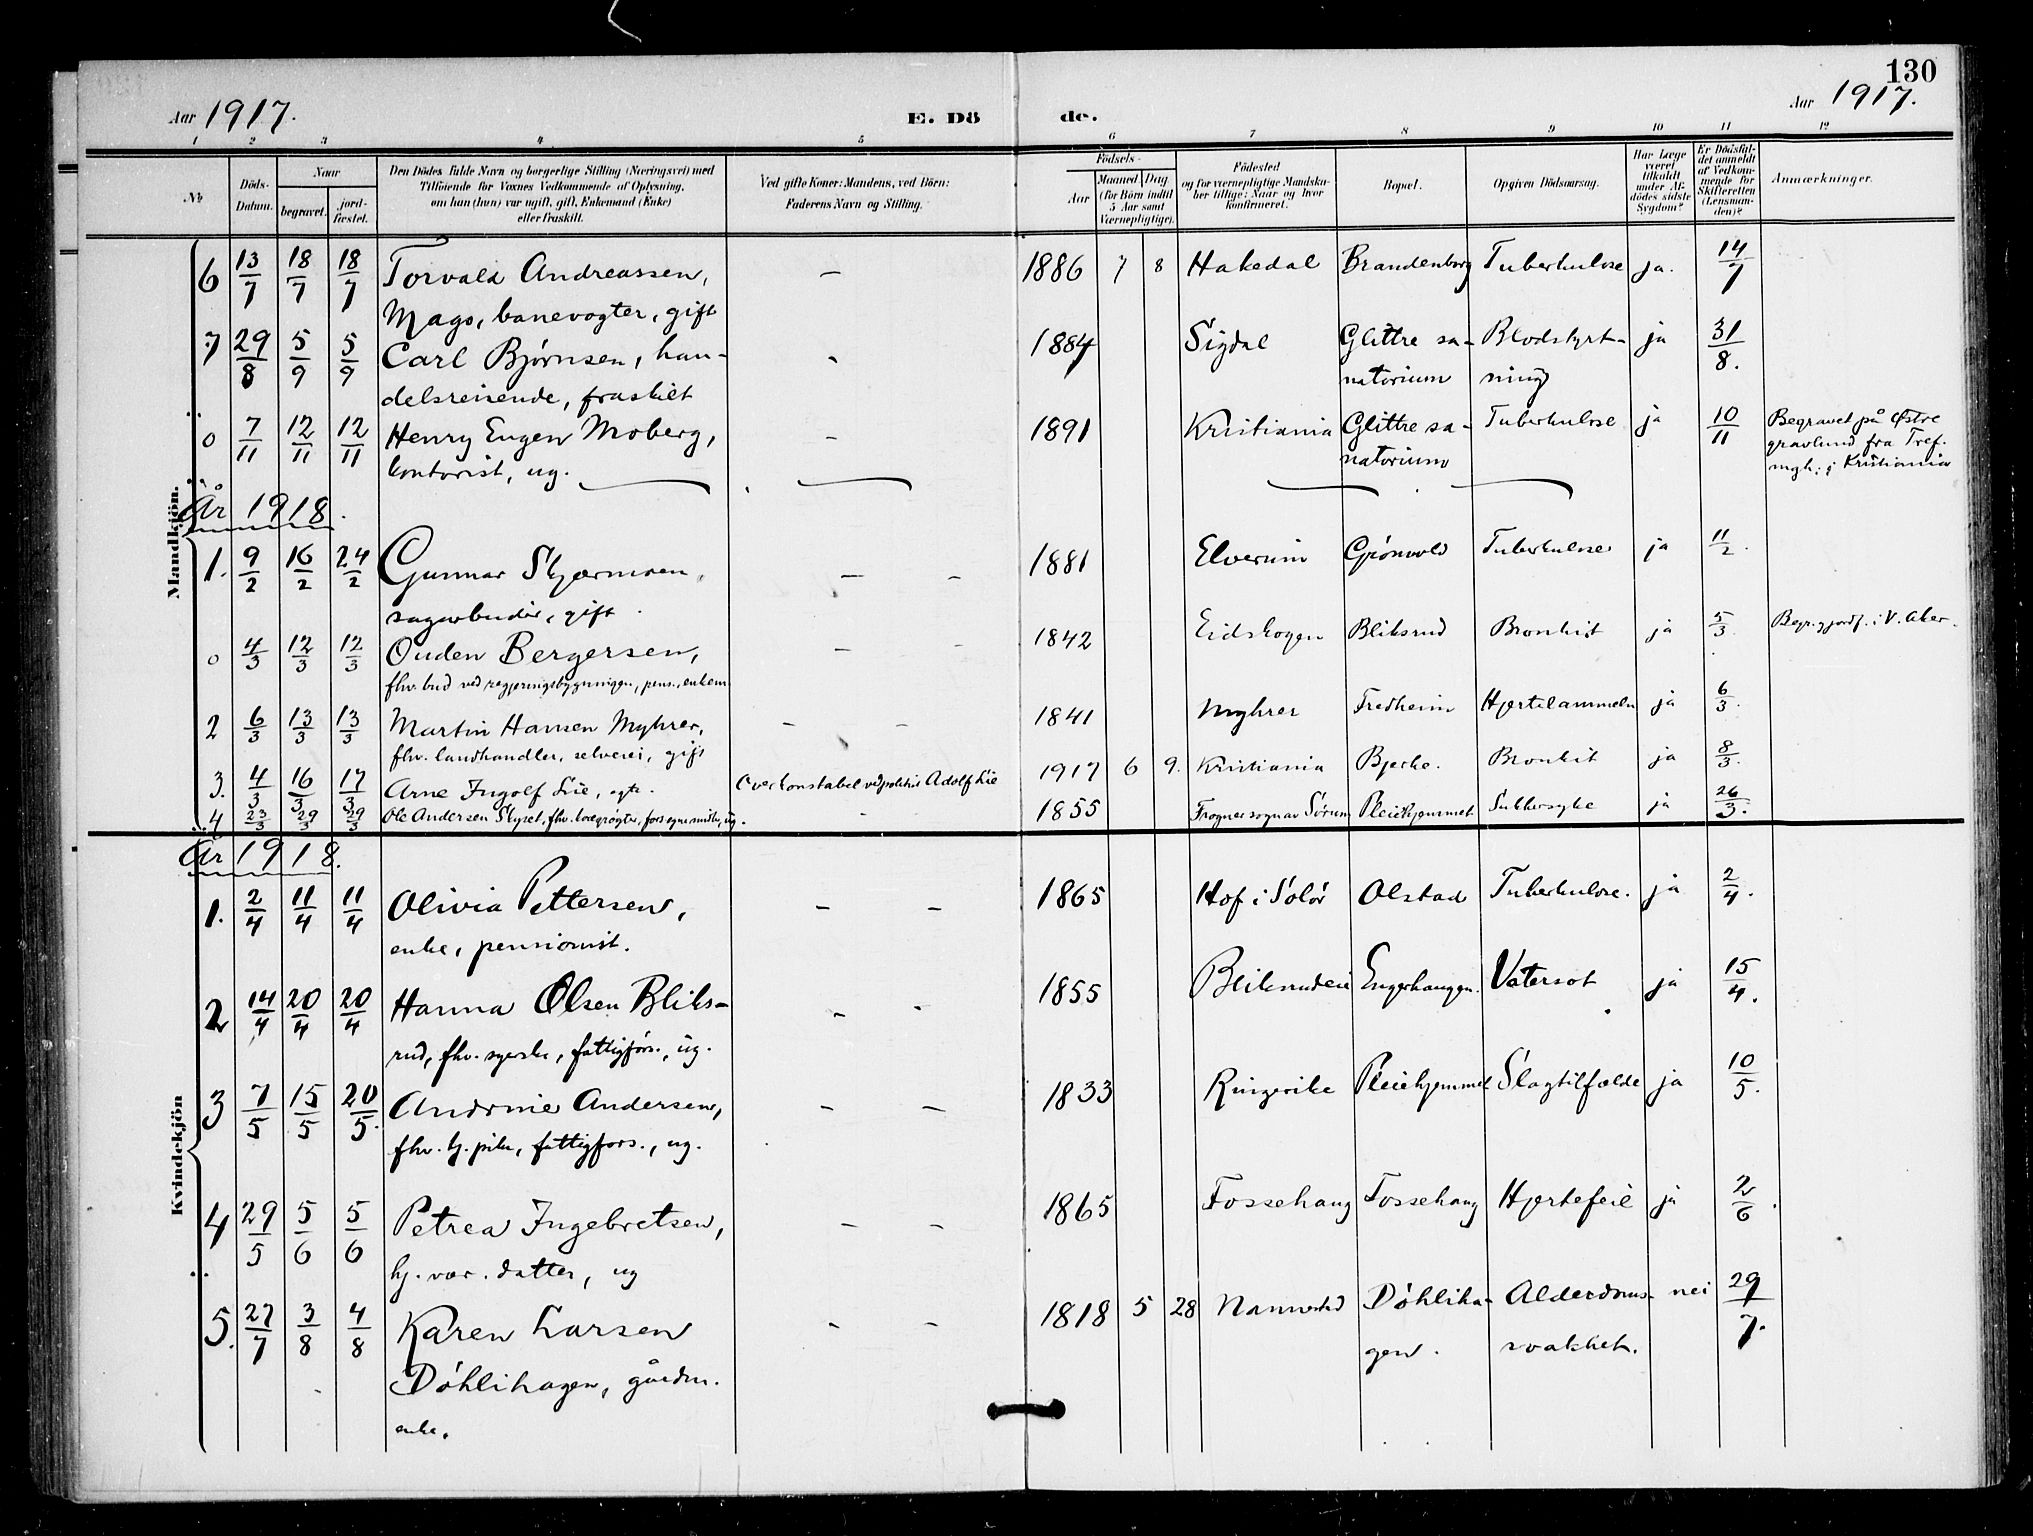 130
Aar 1917.
E. Dö
de.
Aar 1917.
1 2 3 4 5 6 7 8 9 10 11 12
No
Döds-
Datum.
Naar
begravet.
jord-
fæstet.
Den Dödes fulde Navn og borgerlige Stilling (Næringsvei) med
Tilföiende for Voxnes Vedkommende af Oplysning,
om han (hun) var ugift, gift, Enkemand (Enke)
eller fraskilt.
Ved gifte Koner: Mandens, ved Börn:
Faderens Navn og Stilling.
Födsels-
Aar
Maaned Dag
(for Börn indtil
5 Aar samt
Værnepligtige).
Födested
og for værnepligtige Mandska-
ber tillige: Naar og hvor
konfirmeret.
Bopæl.
Opgiven Dödsaarsag.
Har Læge
været
tilkaldt
under Af-
dödes sidste
Sygdom?
Er Dödsfal-
det anmeldt
af Vedkom-
mende for
Skifteretten
(Lensman-
den)?
Anmærkninger.
Mandkjön.
6 13/7 18/7 18/7 Torvald Andreassen, – 1886 7 8 Hakedal Brandenborg Tuberkulose ja. 14/7
Mago, banevogter, gift
7 29/8 5/9 5/9 Carl Bjørnsen, han- 1884 Sigdal Glittre sa- Blodstyrt- ja 31/8.
delsreisende, fraskilt natorium ning
0 7/11 12/11 12/11 Henry Eugen Moberg, – 1891 Kristiania Glittre sa- Tuberkulose ja 10/11 Begravet på Østre
kontorist, ug. natorium gravlund fra Tref.
mgh. i Kristiania
År 1918.
1. 9/2 16/2 24/2 Gunnar Skjærmoen, – – 1881 Elverum Grönvold Tuberkulose ja 11/2.
sagarbeider, gift
0 4/3 12/3 12/3 Ouden Bergersen, – – 1842 Eidskogen Bliksrud Bronkit ja 5/3. Begr. gjordf. i V. Aker.
fhv. bud ved regjeringsbygningen, pens., enkem.
2 6/3 13/3 13/3 Martin Hansen Myhrer, – – 1841 Myhrer Fredheim Hjertelammelse ja 6/3.
fhv. landhandler, selveiei, gift
3. 4/3 16/3 17/3 Arne Ingolf Lie, egte. Overkonstabel ved politiet Adolf Lie 1917 6 9. Kristiania Bjerke. Bronkit ja 8/3.
4 23/3 29/3 29/3 Ole Andersen Skyset, fhv. forsegne midler, ug. – – 1855 Frogner sogn av Sörum Pleiehjemmet Sukkersyke ja 26/3.
År 1918.
Kvindekjön
1. 2/4 11/4 11/4 Olivia Pettersen, – – 1865 Hof i Solör Olstad Tuberkulose. ja 2/4.
enke, pensionist.
2 14/4 20/4 20/4 Hanna Olsen Bliks- – - 1855 Bliksrudeie Engerhaugen. Vatersot ja 15/4.
rud, fhv. syerske, fattigfors., ug.
3 7/5 15/5 20/5. Andrine Andersen, – – 1833 Ringerike Pleiehjemmet Slagtilfælde ja 10/5.
fhv. tj. pike, fattigfors., ug.
4 29/5 5/6 5/6 Petrea Ingebretsen, – – 1865 Fossehaug Fossehaug Hjertefeil ja 2/6.
hj. vær. datter, ug
5. 27/7 3/8 4/8 Karen Larsen – – 1818 5 28 Nannestad Döhliha- Alderdoms- nei 29/7.
Döhlihagen, gårdm. gen. svakhet.
enke.